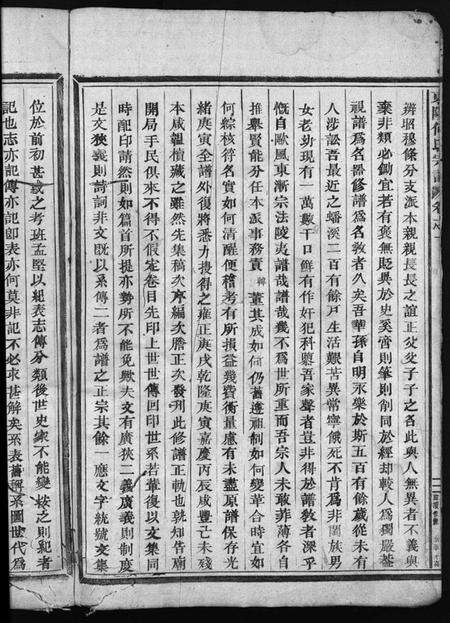 辨昭穆條分支派本親親長長之誼正父父子子之名此與人無異者不義與
棄非類必鋤宜若有褒無貶異於史奚啻則筆則削同於經却較人為獨嚴蓋
視譜為名器修譜為名教者久矣吾華孫自明永樂於斯五百有餘歲從未有
人涉訟吾最近之蟠溪二百有餘戶生活艱苦異常寧餓死不肯為非闔族男
女老幼現有一萬數千口鮮有作奸犯科夔吾家聲者豈非得於譜教者深乎
慨自歐風東漸宗法陵夷譜哉譜哉幾不為世所重而吾宗人未敢菲薄各自
推舉賢能分任本派事務責 董其成如何仍舊遵祖制如何變革合時宜如
何綜核符名實如何清醒便稽考有所損益幾費衡量慮有未盡原譜保存光
緒庚寅全譜外復將悉力搜得之雍正庚戌乾隆庚寅嘉慶丙辰咸豐己未殘
本咸韞櫝藏之雖然先集稿次序編次謄正次發刊此修譜正軌也孰知皆南
開局手民俱來不得不假定卷目先印上世世傳回印世系若輩復以文集同
時配印請然則如篇首所提亦勢所不能免歟夫文有廣狹二義廣義則制度
是文狹義則詩詞非文既以系傳二者為譜之正宗其餘一應文字統號文集
位於前初甚疑之考班孟堅以紀表志傳分類後世史家不能變按之則紀者
記也志亦記傳亦記即表亦何莫非記不必求甚解矣系表舊與系圖世代為